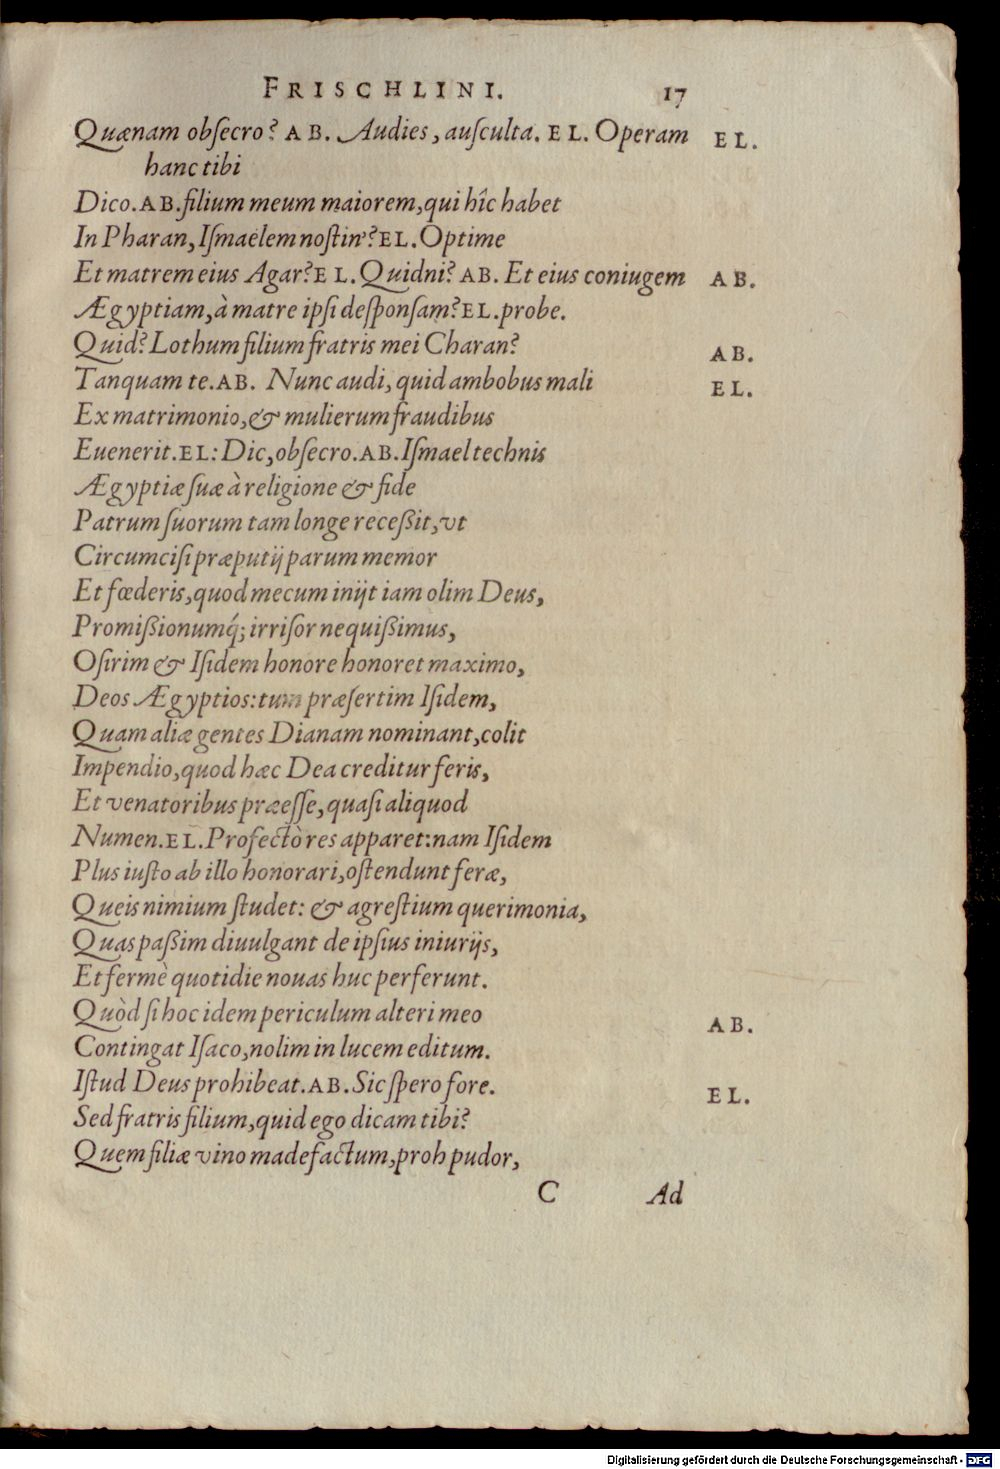 FRISCHLINI. 17
Quænam obſecro? AB. Audies, auſculta. EL. Operam EL.
hanc tibi
Dico. AB. filium meum maiorem, qui hîc habet
In Pharan, Iſmaëlem noſtin'? EL. Optime
Et matrem eius Agar? EL. Quidni? AB. Et eius coniugem AB.
Ægyptiam, à matre ipſi deſponſam? EL. probe.
Quid? Lothum filium fratris mei Charan? AB.
Tanquam te. AB. Nunc audi, quid ambobus mali EL.
Ex matrimonio, & mulierum fraudibus
Euenerit. EL: Dic, obſecro. AB. Iſmael technis
Ægyptiæ ſuæ à religione & fide
Patrum ſuorum tam longe receßit, vt
Circumciſi præputij parum memor
Et fœderis, quod mecum inijt iam olim Deus,
Promißionumq́; irriſor nequißimus,
Oſirim & Iſidem honore honoret maximo,
Deos Ægyptios: tum præſertim Iſidem,
Quam aliæ gentes Dianam nominant, colit
Impendio, quod hæc Dea creditur feris,
Et venatoribus præeſſe, quaſi aliquod
Numen. EL. Profectò res apparet: nam Iſidem
Plus iuſto ab illo honorari, oſtendunt feræ,
Queis nimium ſtudet: & agreſtium querimonia,
Quas paßim diuulgant de ipſius iniurijs,
Et fermè quotidie nouas huc perferunt.
Quòd ſi hoc idem periculum alteri meo AB.
Contingat Iſaco, nolim in lucem editum.
Iſtud Deus prohibeat. AB. Sic ſpero fore. EL.
Sed fratris filium, quid ego dicam tibi?
Quem filiæ vino madefactum, proh pudor,
C Ad
Digitalisierung gefördert durch die Deutsche Forschungsgemeinschaft - DFG